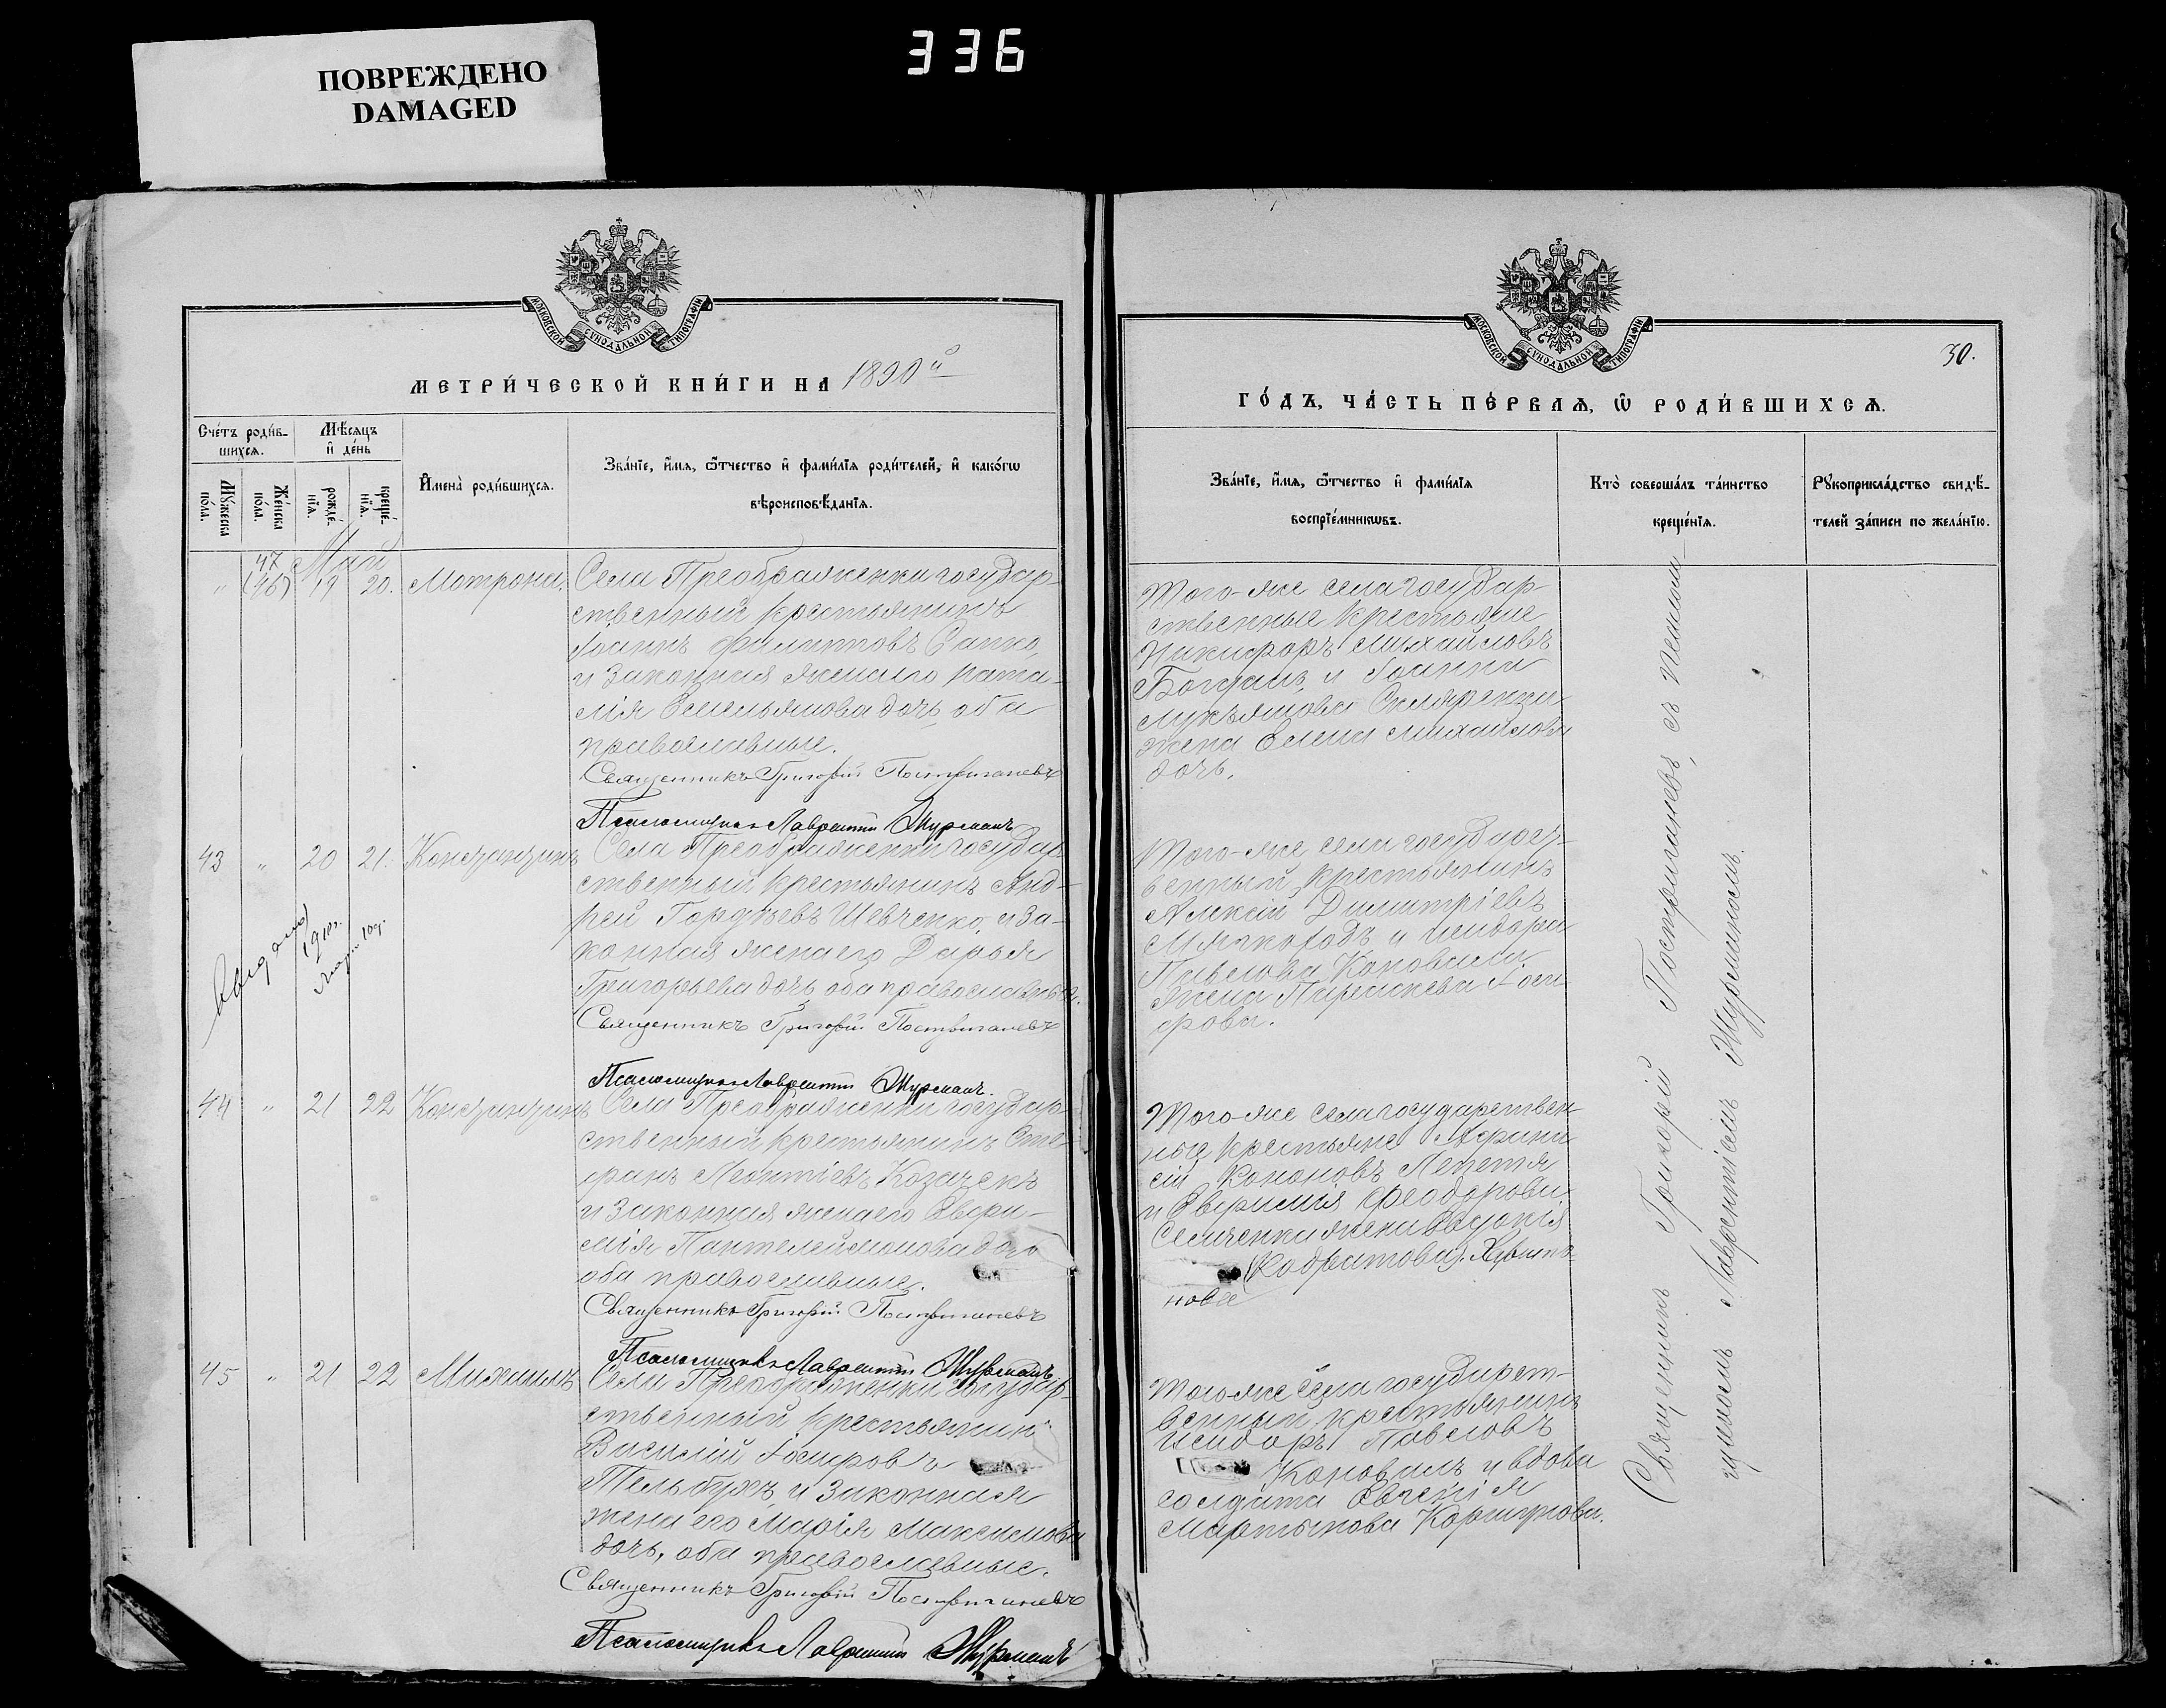 ПОВРЕЖДЕНО
DAMAGED
336
МОСКОВСКОЙ СѴНОДАЛЬНОЙ ТИПОГРАФІИ
МЕТРИ́ЧЕСКОЙ КНИ́ГИ НА 1890й
Сче́тъ роди́в-
шихсѧ.
Мѣ́сѧцъ
и҆ де́нь
Мꙋ́жеска
по́ла.
Же́нска
по́ла.
рожде́-
нїѧ.
креще́-
нїѧ.
И҆мена̀ роди́вшихсѧ.
Зва́нїе, и҆́мѧ, ѿтчество и҆ фами́лїѧ роди́телей, и҆ како́гѡ
вѣроисповѣ́данїѧ.
Май
47
" (46) 19 20. Мотрона.
Села Преображенки государ-
ственный крестьянинъ
Іоаннъ Филипповъ Сапко,
и законная жена его Ната-
лія Емельянова дочь, оба
православные.
Священникъ Григорій Постригачевъ
Псаломщикъ Лаврентій Журманъ
43 " 20 21. Константинъ
Села Преображенки государ-
ственный крестьянинъ Анд-
рей Гордѣевъ Шевченко, и за-
конная жена его Дарья
Григорьева дочь, оба православные.
Священникъ Григорій Постригачевъ
Псаломщикъ Лаврентій Журманъ.
Выдано
1910г.
44 " 21 22 Константинъ
Села Преображенки государ-
ственный крестьянинъ Сте-
фанъ Леонтіевъ Козачекъ
и законная жена его Евфи-
мія Пантелеймонова дочь
оба православные.
Священникъ Григорій Постригачевъ
Псаломщикъ Лаврентій Журманъ
45 " 21 22 Михаилъ
Села Преображенки государ-
ственный крестьянинъ
Василій Іосифовъ
Тельбухъ и законная
жена его Марія Максимова
дочь, оба православные.
Священникъ Григорій Постригачевъ
Псаломщикъ Лаврентій Журманъ
МОСКОВСКОЙ СѴНОДАЛЬНОЙ ТИПОГРАФІИ
30.
ГО́ДЪ, ЧА́СТЬ ПЕ́РВАѦ, Ѡ҆ РОДИ́ВШИХСѦ.
Зва́нїе, и҆́мѧ, ѿтчество и҆ фами́лїѧ
воспрїе́мникѡвъ.
Кто̀ соверша́лъ та́инство
креще́нїѧ.
Рꙋкоприкла́дство свидѣ́-
телей за́писи по жела́нїю.
Того-же села государ-
ственные крестьяне
Никифоръ Михайловъ
и Іоанна
Лукьянова Скляренки
жена Елена Михайлова
дочь.
Того-же села государст-
венный крестьянинъ
Алексій Димитріевъ
Мягкоходъ и Исидора
Павлова Коновала
жена Параскева Іоси-
фова.
Того-же села государствен-
ные крестьяне Афана-
сій Кононовъ Лепетя
и Феодорова
Семченки жена Евдокія
Кодратова
нова
Того-же села государст-
венный крестьянинъ
Исидоръ Павловъ
Коновалъ и вдова
солдата Евгенія
Мартынова
Священникъ Григорій Постригачевъ, съ псалом-
щикомъ Лаврентіемъ Журманомъ.